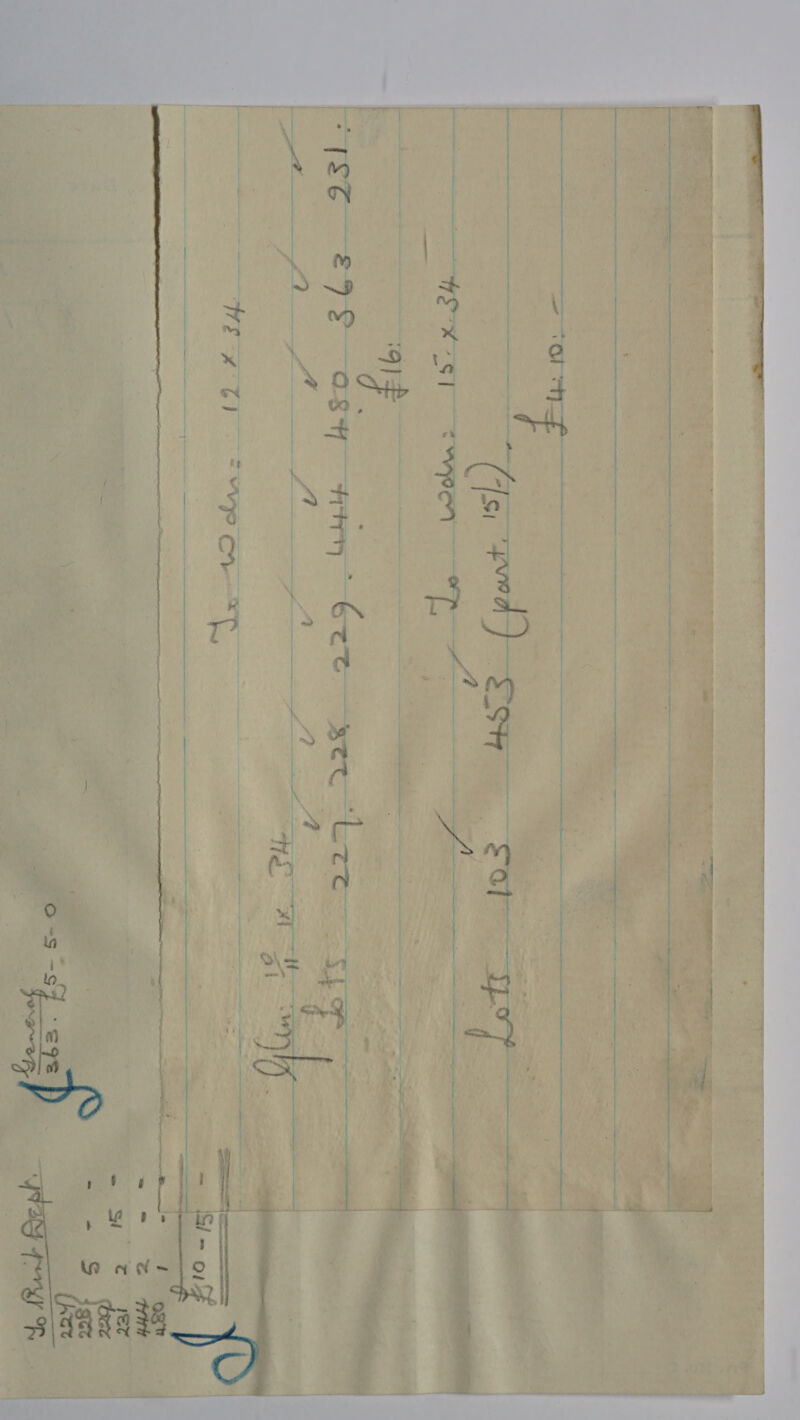 To Print Dept.
227
228 5 - -
229
231 2 15 -
444 2 - -
480 1 - -
£10 - 15 -
General
363. £5-5-0
To Wdn: 12. X 34
Glen: 10/11 IX 34
Lots 227. 228 229. 444 480 363 231.
£16:
To Wdn: 15. X. 34
Lots 103 453 (part. 15/-).
£4:10:-